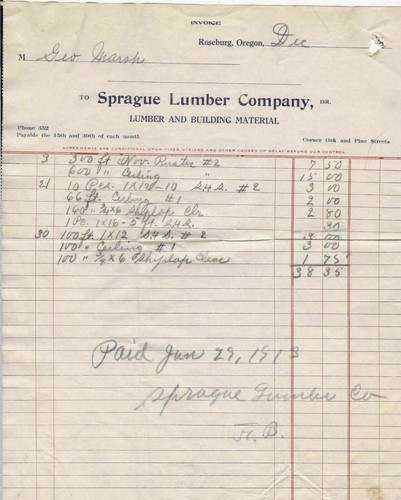 INVOICE
Roseburg, Oregon, Dec
M Geo Marsh
TO Sprague Lumber Company, DR.
LUMBER AND BUILDING MATERIAL
Phone 352
Payable the 15th and 30th of each month
Corner Oak and Pine Streets
AGREEMENTS ARE CONDITIONAL UPON FIRES, STRIKES AND OTHER CAUSES OF DELAY BEYOND OUR CONTROL
3 300 ft Nov. Rustic #2 7 50
600 " Ceiling " 15 00
21 10 Pcs. 1X12-10 S4S. #2 3 00
66 ft Ceiling #1 2 00
160 " 3/4x6 Shiplap Clr 2 80
1 Pc. 1X16-5 ft. S4S. 30
30 100 ft. 1X12 S4S. #2 3 00
100 " Ceiling #1 3 00
100 " 3/4x6 Shiplap Clear 1 75
38 35
Paid Jan 29, 1913
Sprague Lumber Co